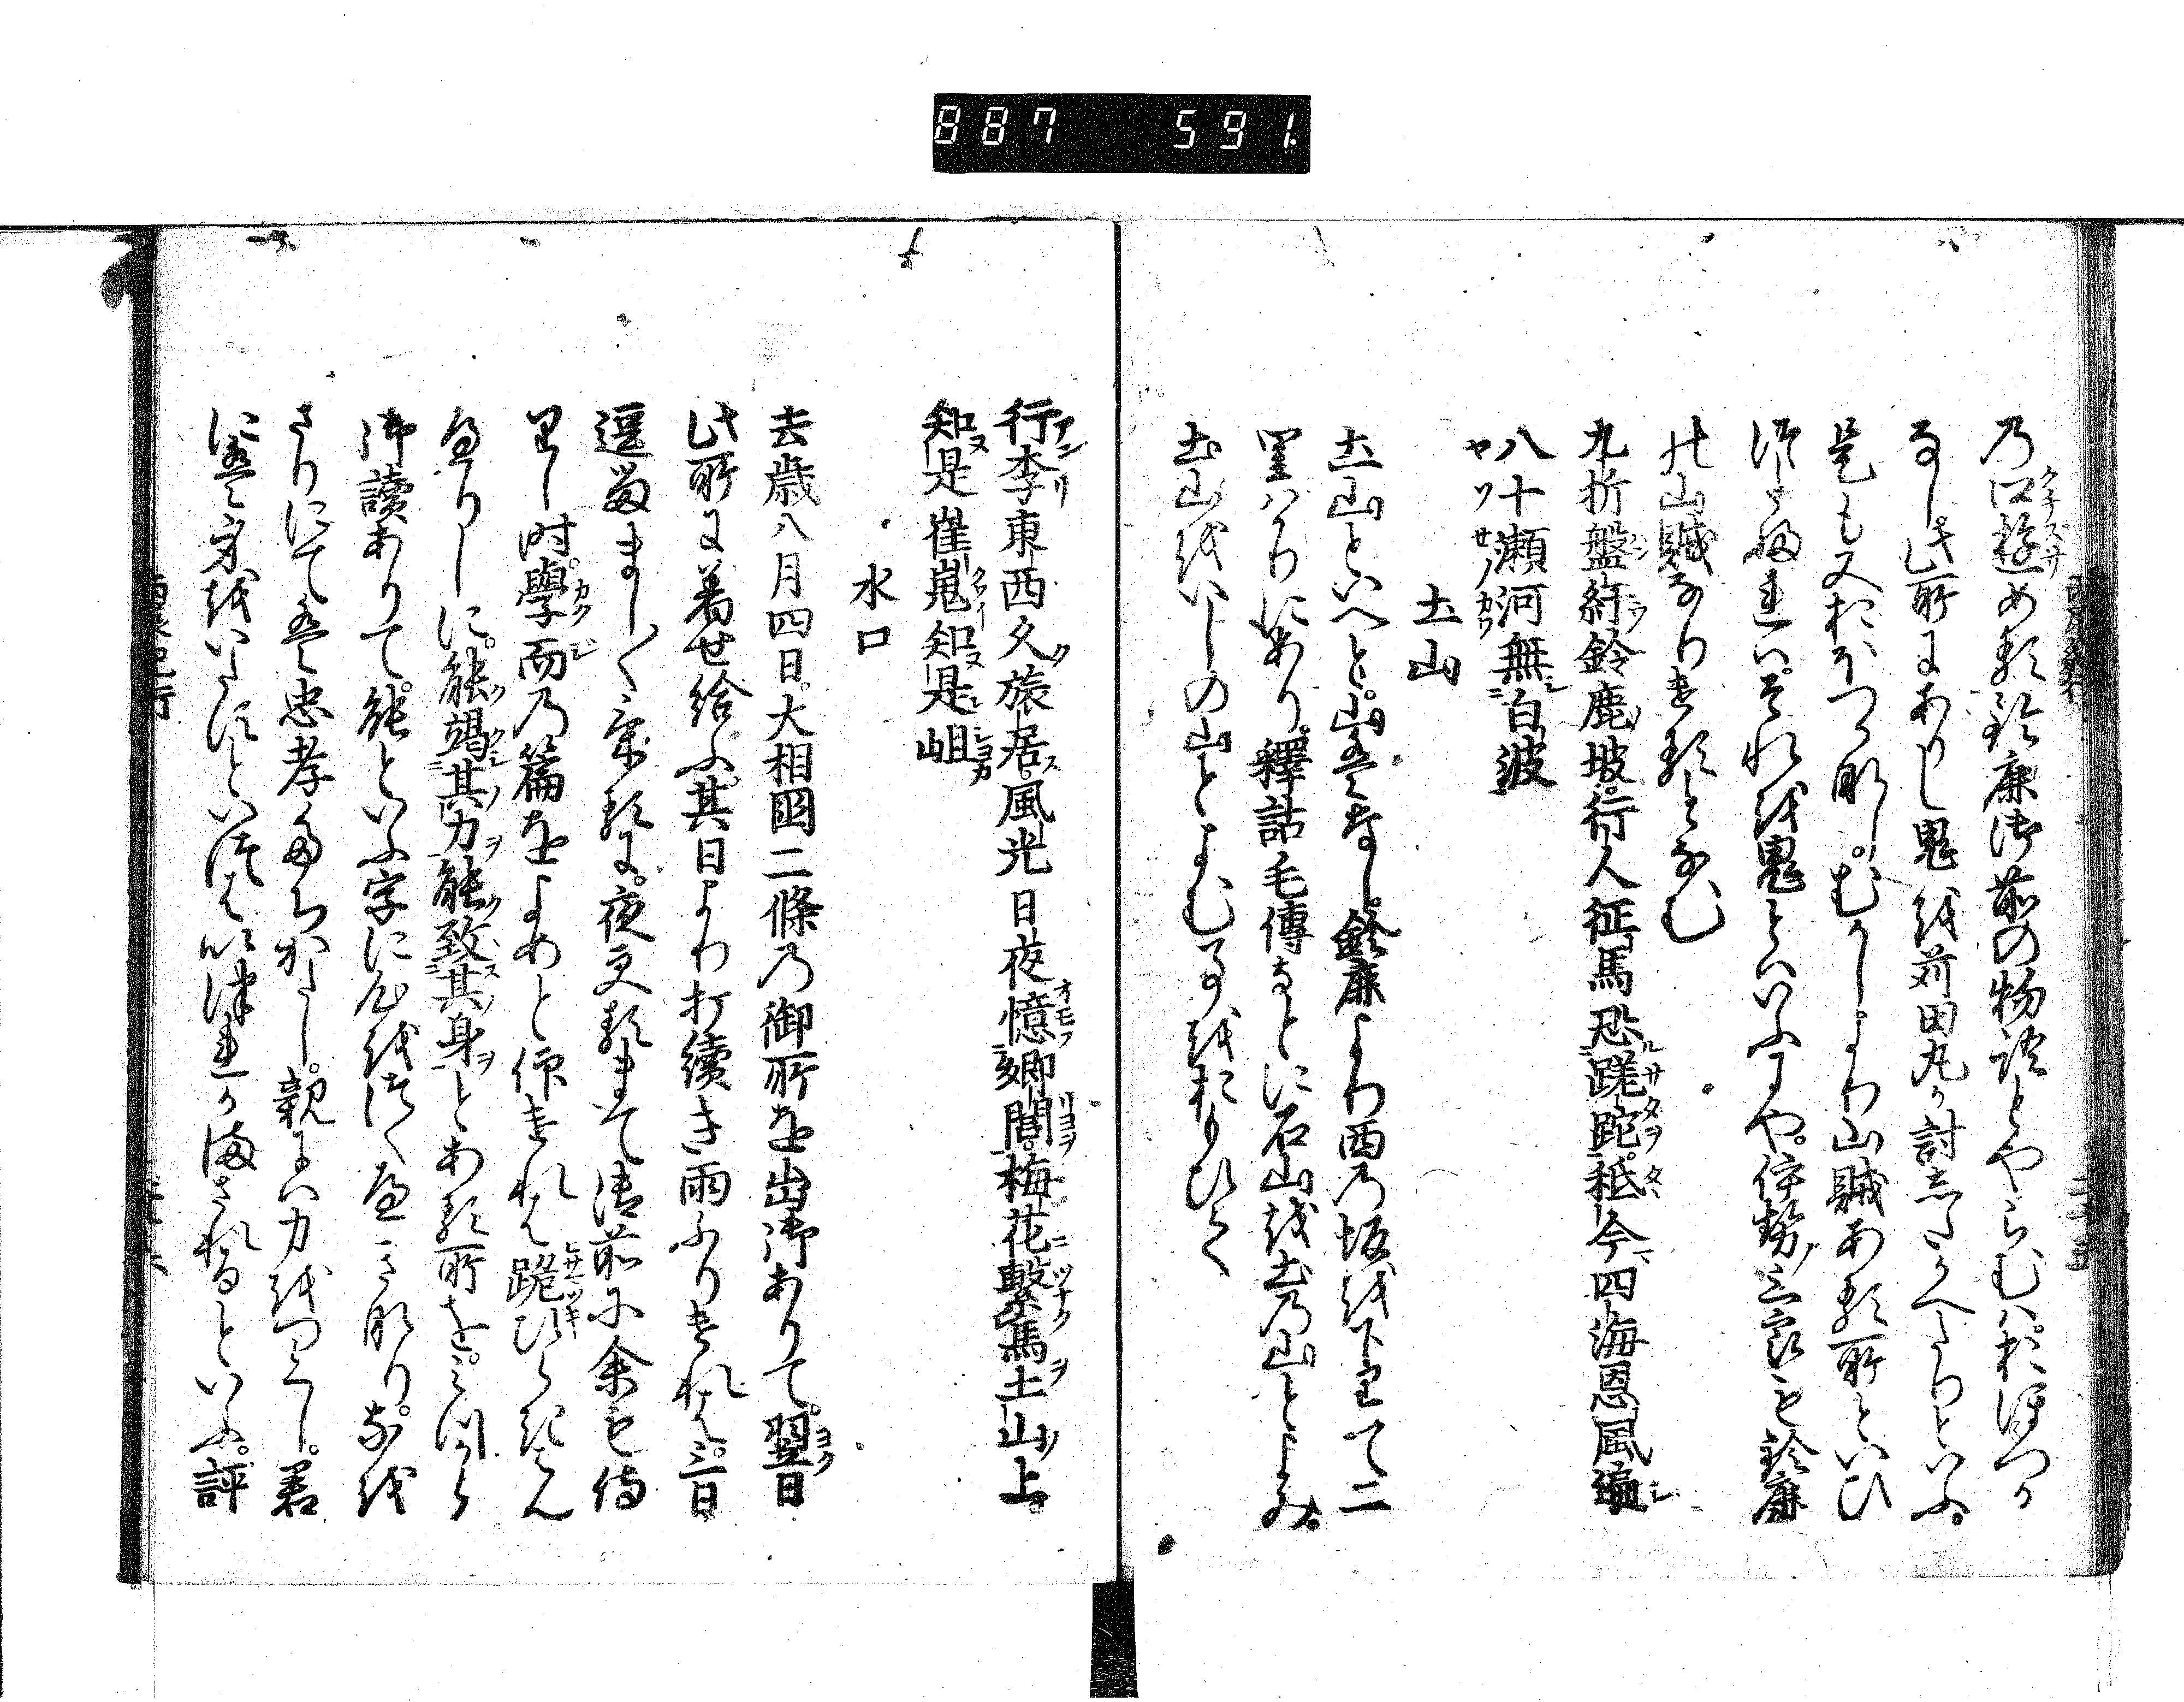 887 591
乃口遊める鈴鹿御前の物語とやらむハおほつか
なし此所にありし鬼を苅田丸か討したかへたりといふ。
是も又おほつかなし。むかしより山賊ある所といひ
つたふれハ。それを鬼とハいふにや。伊勢三郎も鈴鹿
の山賊なりけるとなむ
九折盤紆鈴鹿坡。行人征馬恐蹉跎。秖今四海恩風遍
八十瀬河無白波
土山
土山といへと。山ハなし。鈴鹿より西乃坂を下りて二
里ハかりにあり。釋詁毛傳なとに石山を土乃山とよみ。
土山をいしの山とよむ事をおもひて
行李東西久旅居。風光日夜憶郷閭。梅花繋馬土山上。
知是崔嵬知是岨
水口
去歳八月四日。大相國二條乃御所を出御ありて。翌日
此所に着せ給ふ。其日より打續き雨ふりけれハ。三日
逗留まし〱ける に。夜更るまて御前に余も侍
りし時。學而乃篇をよめと仰けれハ跪ひらきよん
たりしに。能竭其力能致其身とある所を。みつから
御讀ありて。能といふ字に心をつくへきなり。なを
さりにてハ忠孝ともかたし。親にハ力をつくし。君
にハ身をいたすといへハいつれか まされるといふ。評